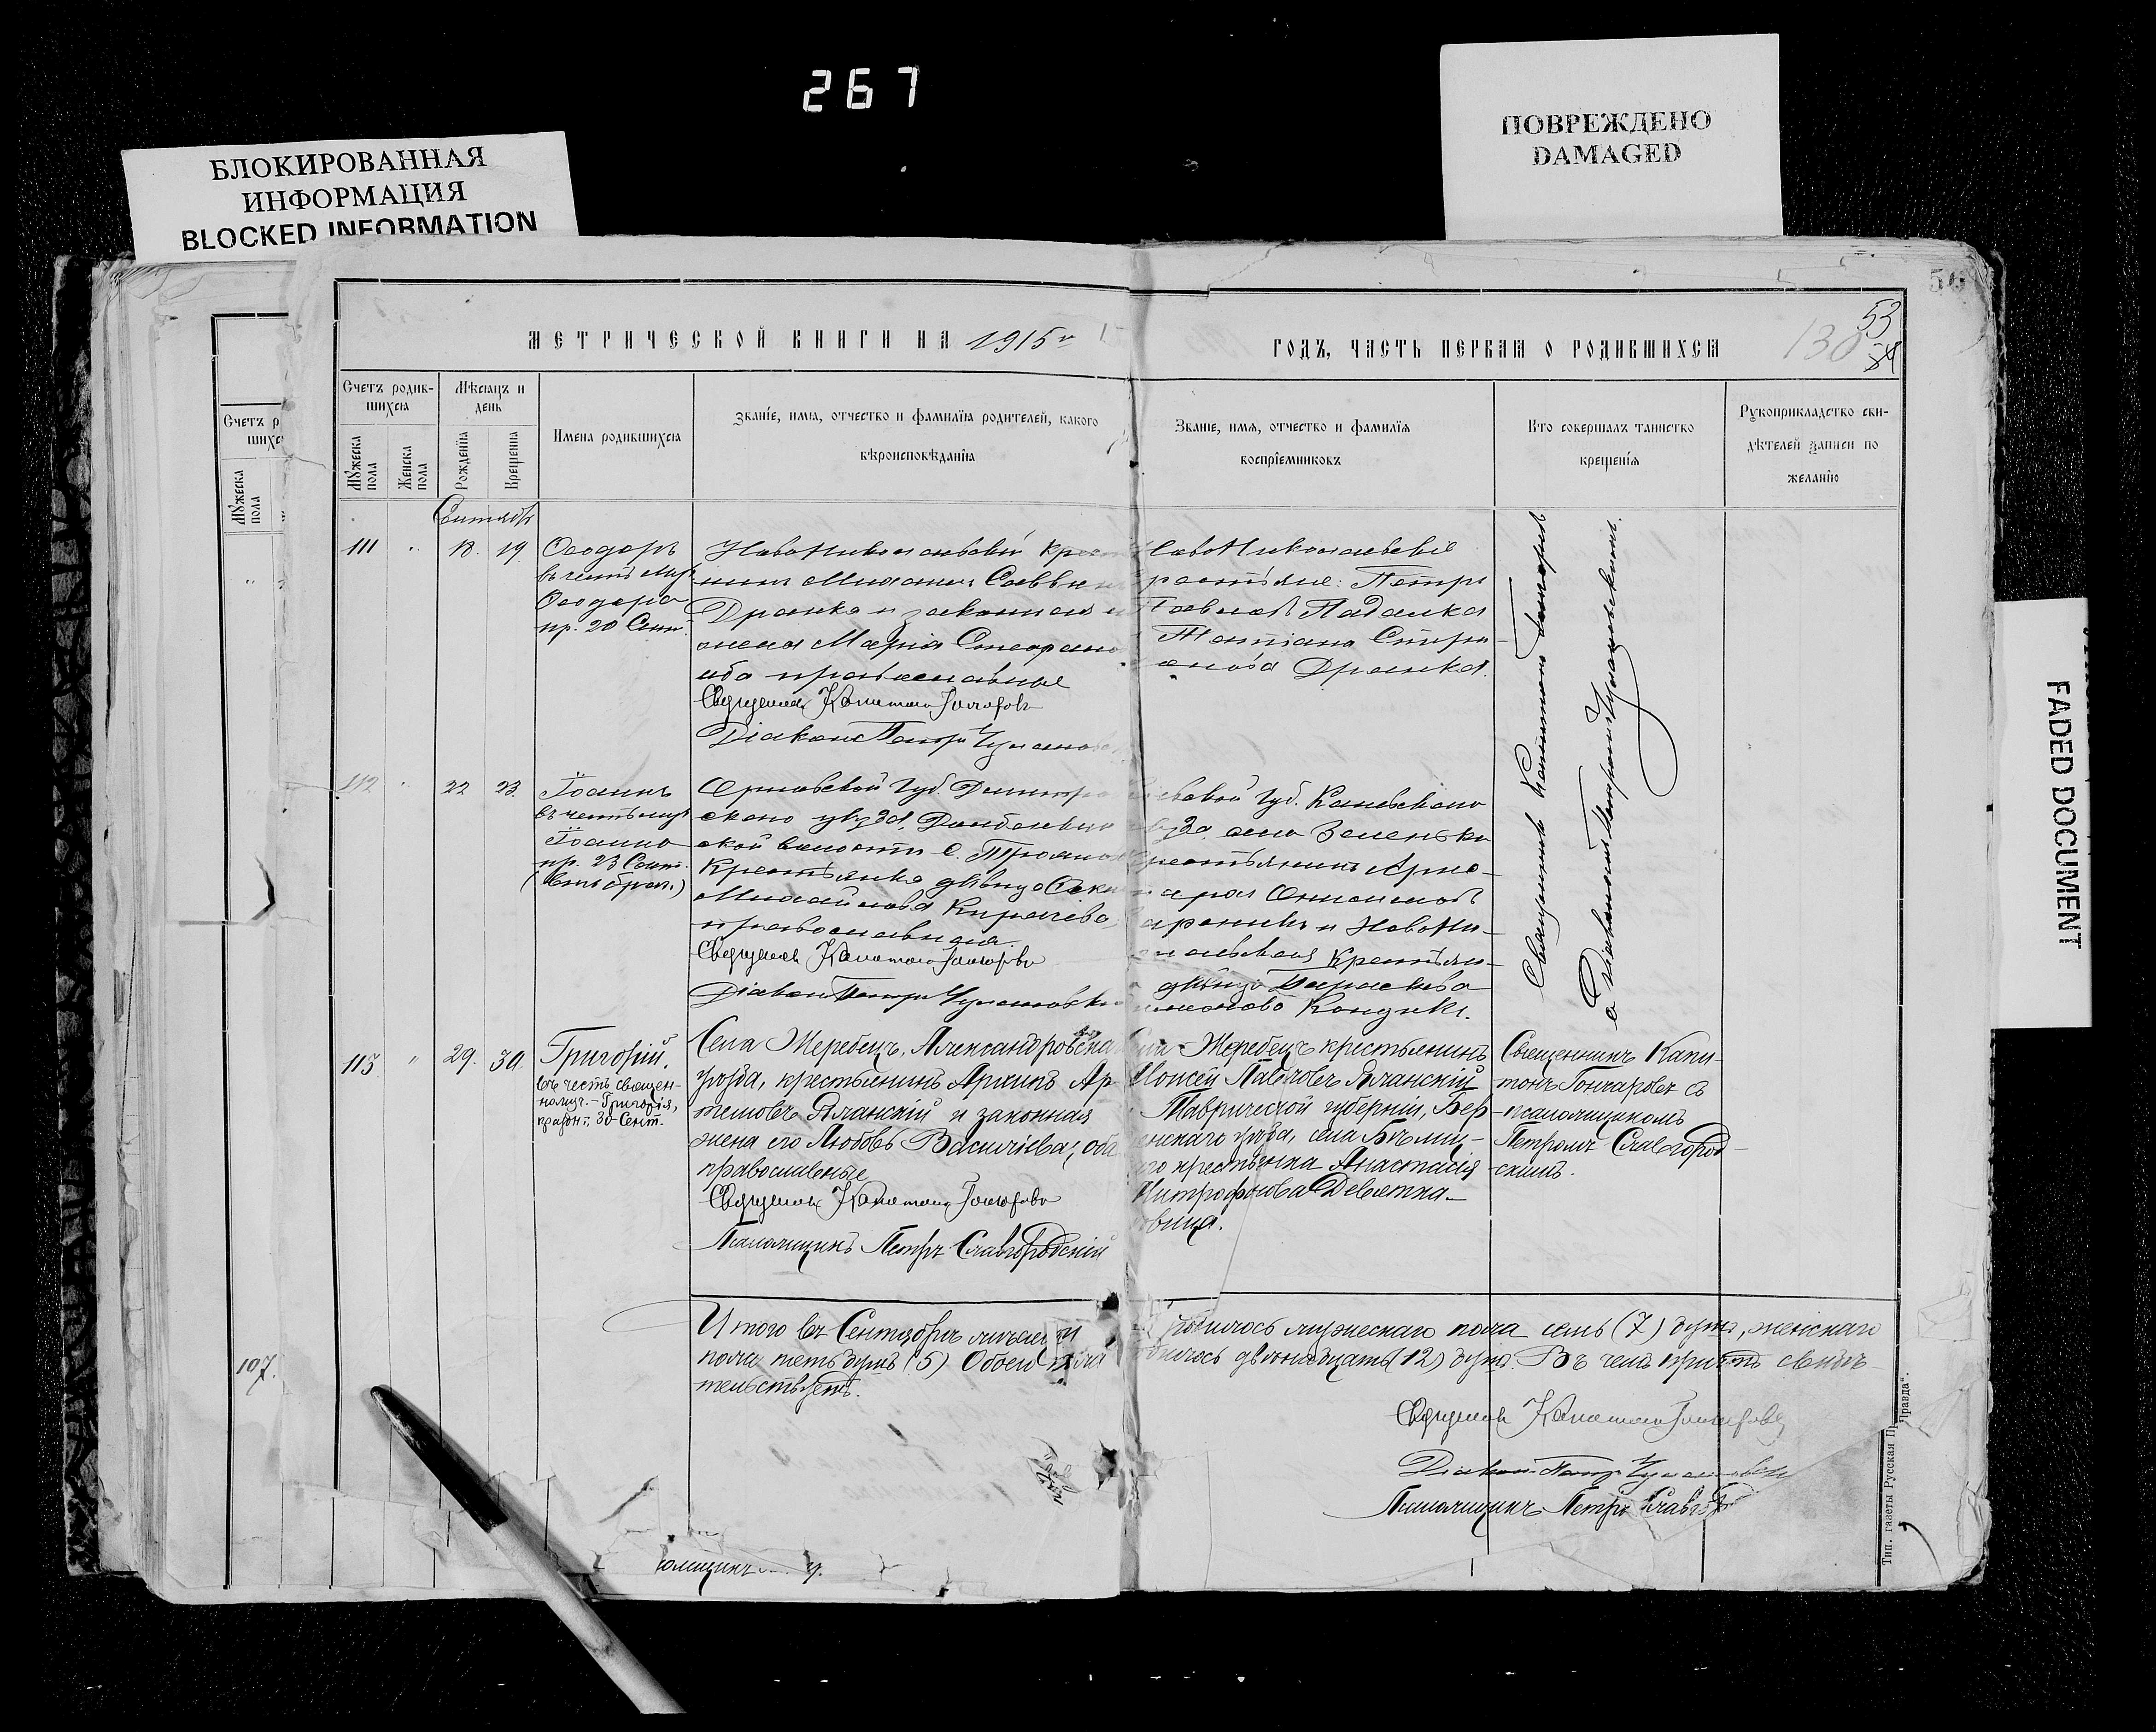 267
БЛОКИРОВАННАЯ
ИНФОРМАЦИЯ
BLOCKED INFORMATION
ПОВРЕЖДЕНО
DAMAGED
FADED DOCUMENT
50
53
54
130
МЕТРИЧЕСКОЙ КНИГИ НА 1915 й
ГОДЪ, ЧАСТЬ ПЕРВАЯ О РОДИВШИХСЯ
Счетъ родив-
шихся
Мужеска пола
Женска пола
Мѣсяцъ и
день
Рожденія
Крещенія
Имена родившихся
Званіе, имя, отчество и фамилія родителей, какого
вѣроисповѣданія
Званіе, имя, отчество и фамилія
воспріемниковъ
Кто совершалъ таинство
крещенія
Рукоприкладство сви-
дѣтелей записи по
желанію
Счетъ р
шихс
Мужеска пола
107.
Сентябрь
111 " 18. 19.
Ѳеодоръ
въ честь
Ѳеодора
пр. 20 Сент.
Новониколаевскій крес
нинъ Михаилъ Саввинъ
Дранка и законная
жена Марія Стефано
оба православные
Священникъ Капитонъ Гончаровъ
Діаконъ Петръ
Новониколаевскіе
крестьяне: Петръ
Павловъ Падалка
Татіана
Дранка.
Священникъ Капитонъ Гончаровъ
с Діакономъ Петромъ
112 " 22 23.
Іоаннъ
въ честь
Іоанна
пр. 23 Сент.
(внѣ брач.)
Орловской Губ. Дмитро
скаго уѣзда,
ской волости С.
Крестьянка дѣвица
Михайлова
православная.
Священникъ Капитонъ Гончаровъ
Діаконъ Петръ
Кіевской Губ. Каневскаго
уѣзда села Зеленьки
крестьянинъ
и Новони-
колаевская крестьян-
дѣвица Параскева
113 " 29. 30.
Григорій.
въ честь священ-
номуч. Григорія,
праздн. 30 Сент.
Села Жеребецъ, Александровска
уѣзда, крестьянинъ Архипъ Ар-
темовъ Яланскій и законная
жена его Любовь Василіева; оба
православные
Священникъ Капитонъ Гончаровъ
Псаломщикъ Петръ Славгородскій
Села Жеребецъ крестьянинъ
Моисей Павловъ Яланскій
Таврической губерніи, Бер-
дянскаго уѣзда, села
крестьянка Анастасія
Митрофанова
Священникъ Капи-
тонъ Гончаровъ съ
псаломщикомъ
Петромъ Славгород-
скимъ.
Итого въ Сентябрѣ мѣсяцѣ родилось мужескаго пола семь (7) душъ, женскаго
пола пять душъ (5) Обоего пола родилось двѣнадцать (12) душъ. Въ чемъ причтъ свидѣ-
тельствуетъ.
Священникъ Капитонъ Гончаровъ
Діаконъ Петръ
Псаломщикъ Петръ Славго
Тип. газеты Русская Правда".